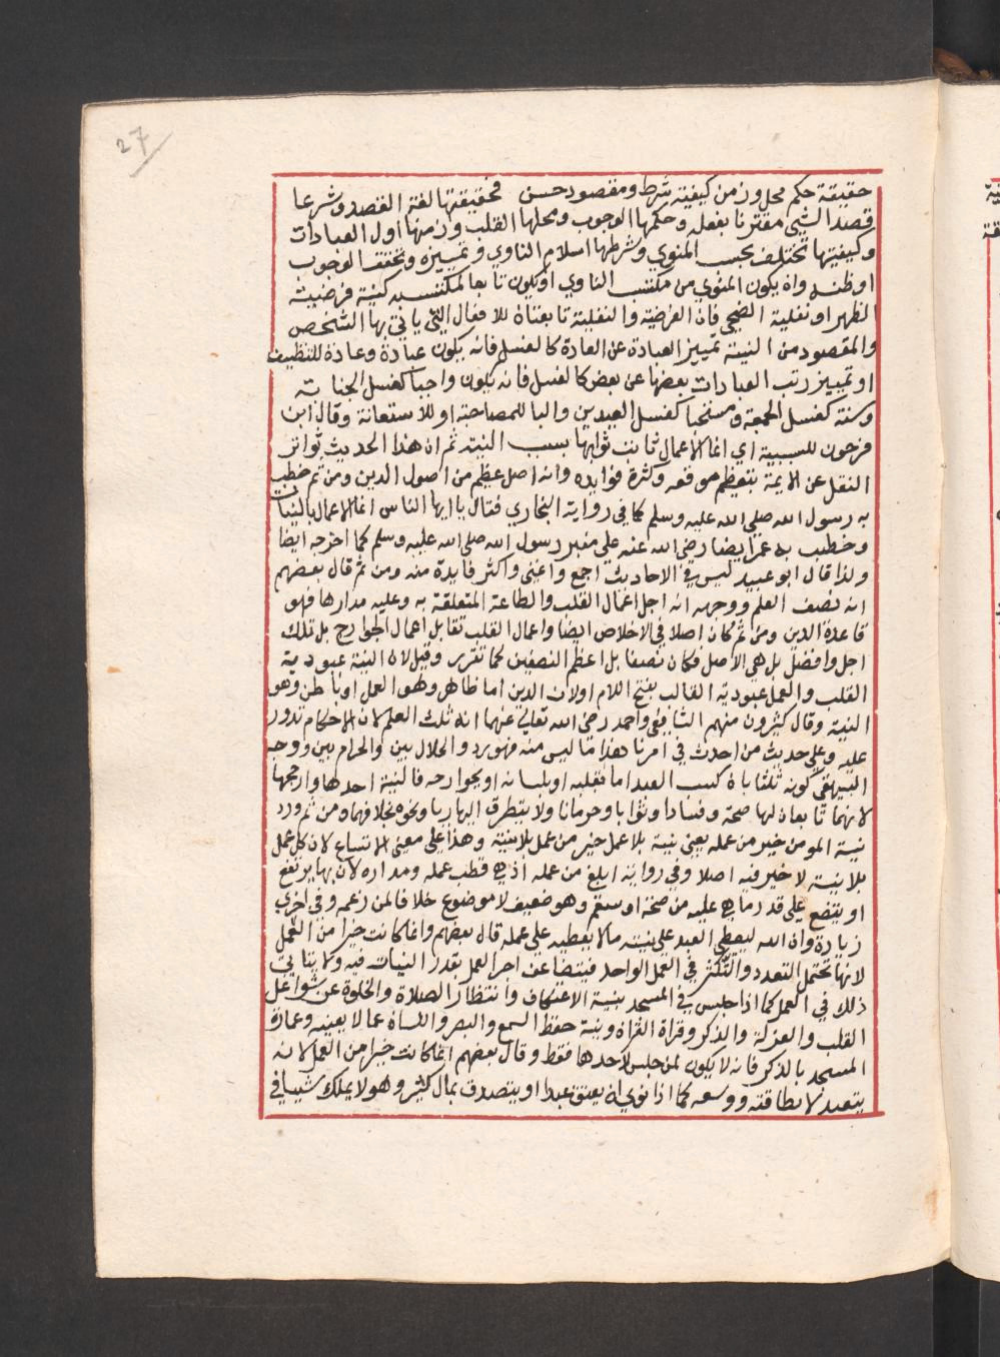 27
حقيقة حكم محل وزمن كيفية شرط ومقصود حسن فحقيقتها لغة القصد وشرعا
قصد الشيئ مقترنا بفعله وحكمها الوجوب ومحلها القلب وزمنها اول العبادات
وكيفيتها تختلف بحسب المنوي وشرطها اسلام الناوي وتمييزه وتحقق الوجوب
او ظنه وان يكون المنوي من مكتسب الناوي او يكون تابعا لمكتسبه كنية فرضيت
الظهر او نفلية الضحى فان الفرضية والنفلية تابعتان للافعال التي ياتي بها الشخص
والمقصود من النية تمييز العبادة عن العادة كالغسل فانه يكون عبادة وعادة للتنظيف
او تمييز رتب العبادات بعضها عن بعض كالغسل فانه يكون واجبا كغسل الجنابة
وسنة كغسل الجمعة ومستحبا كغسل العيدين والبا للمصاحبة او للاستعانة وقال ابن
فرحون للسببية اي انما الاعمال ثابت ثوابها بسبب النية ثم ان هذا الحديث تواتر
النقل عن الايمة بتعظيم موقعه وكثرة فوايده وانه اصل عظيم من اصول الدين ومن ثم خطب
به رسول الله صلى الله عليه وسلم كما في رواية البخاري فقال ياايها الناس انما الاعمال بالنيات
وخطب به عمر ايضا رضي الله عنه علي منبر رسول الله صلى الله عليه وسلم كما اخرجه ايضا
ولذا قال ابو عبيد ليس في الاحاديث اجمع واغنى واكثر فايدة منه ومن ثم قال بعضهم
انه نصف العلم ووجهه انه اجل اعمال القلب والطاعة المتعلقة به وعليه مدارها فهو
قاعدة الدين ومن ثم كان اصلا في الاخلاص ايضا واعمال القلب تقابل اعمال الجوارح بل تلك
اجل وافضل بل هي الاصل فكان نصفا بل اعظم النصفين كما تقرر وقيل لان النية عبودية
القلب والعمل عبودية القالب بفتح اللام او لان الدين اما ظاهر وهو العمل او باطن وهو
النية وقال كثيرون منهم الشافعي واحمد رضي الله تعالي عنهما انه ثلث العلم لان الاحكام تدور
عليه وعلي حديث من احدث في امرنا هذا ما ليس منه فهو رد والحلال بين والحرام بين ووجه
البيهقي كونه ثلثا بان كسب العبد اما بقلبه او بلسانه او بجوارحه فالنية احدها وارجحها
لانهما تابعان لها صحة وفسادا وثوابا وحرمانا ولا يتطرق اليها ريا ونحوه بخلافهما ومن ثم ورد
نية المومن خير من عمله يعني نية بلا عمل خير من عمل بلا نية وهذا علي معنى الاتساع لان كل عمل
بلا نية لا خير فيه اصلا وفي رواية ابلغ من عمله اذ هي قطب عمله ومداره لان بها يرتفع
او يتضع علي قدر ما هي عليه من صحة او سقم وهو ضعيف لا موضوع خلافا لمن زعمه وفي اخري
زيادة وان الله ليعطي العبد علي نيته مالا يعطيه علي عمله قال بعضهم وانما كانت خيرا من العمل
لانها تحتمل التعدد والتكثر في العمل الواحد فيتضاعف اجر العمل بقدر النيات فيه ولا يتاتي
ذلك في العمل كما اذا جلس في المسجد بنية الاعتكاف وانتظار الصلاة والخلوة عن شواغل
القلب والعزلة والذكر وقراة القران ونية حفظ السمع والبصر واللسان عما لا يعنيه وعمارة
المسجد بالذكر فانه لا يكون لمن جلس لاحدها فقط وقال بعضهم انما كانت خيرا من العمل لانه
يتعبد بها بطاقته ووسعه كما اذا نوي ان يعتق عبدا او يتصدق بمال كثير وهو لا يملك شيا في